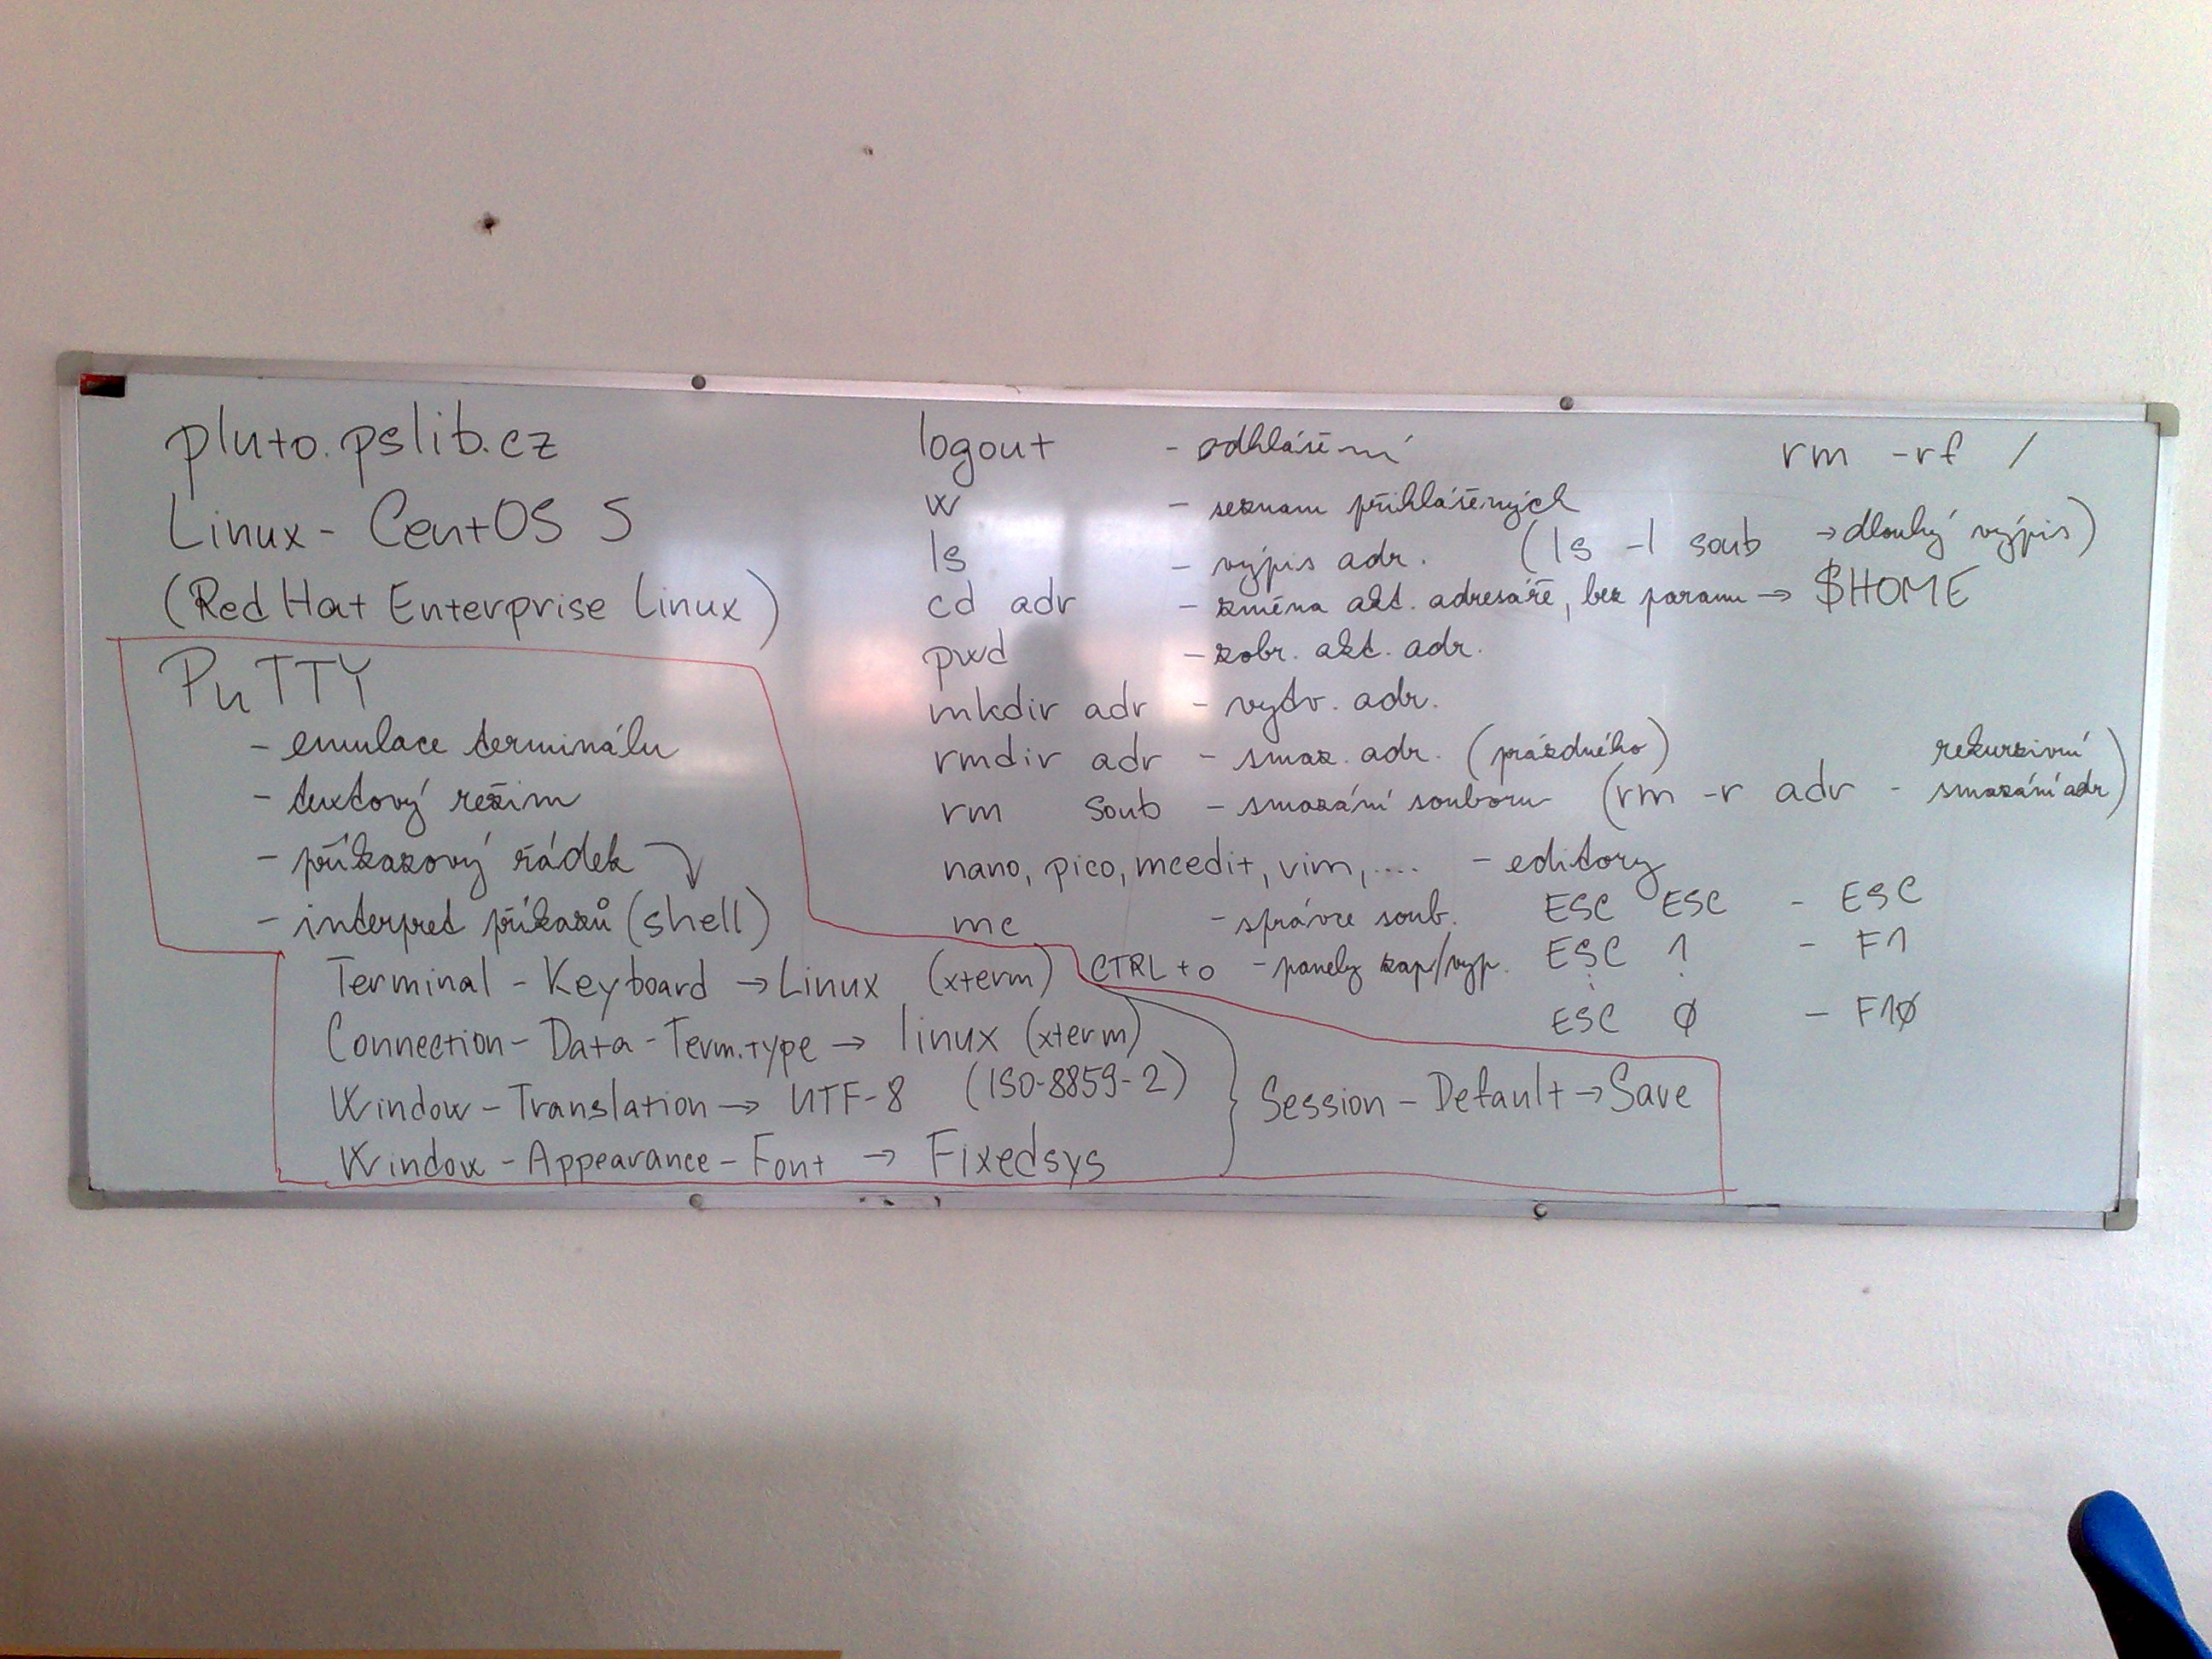 pluto.pslib.cz
Linux - CentOS 5
(Red Hat Enterprise Linux)
PuTTY
- emulace terminálu
- textový režim
- příkazový řádek
- interpret příkazů (shell)
Terminal - Keyboard → Linux (xterm)
Connection - Data - Term.type → linux (xterm)
Window - Translation → UTF-8 (ISO-8859-2)
Window - Appearance - Font → Fixedsys
Session - Default → Save
logout - odhlášení
rm -rf /
w - seznam přihlášených
ls - výpis adr. (ls -l soub → dlouhý výpis)
cd adr - změna akt. adresáře, bez param → $HOME
pwd - zobr. akt. adr.
mkdir adr - vytv. adr.
rmdir adr - smaz. adr. (prázdného)
rm soub - smazání souboru (rm -r adr - rekurzivní smazání adr)
nano, pico, mcedit, vim, .... - editory
mc - správce soub.
CTRL + o - panely zap/vyp.
ESC ESC - ESC
ESC 1 - F1
: :
ESC 0 - F10